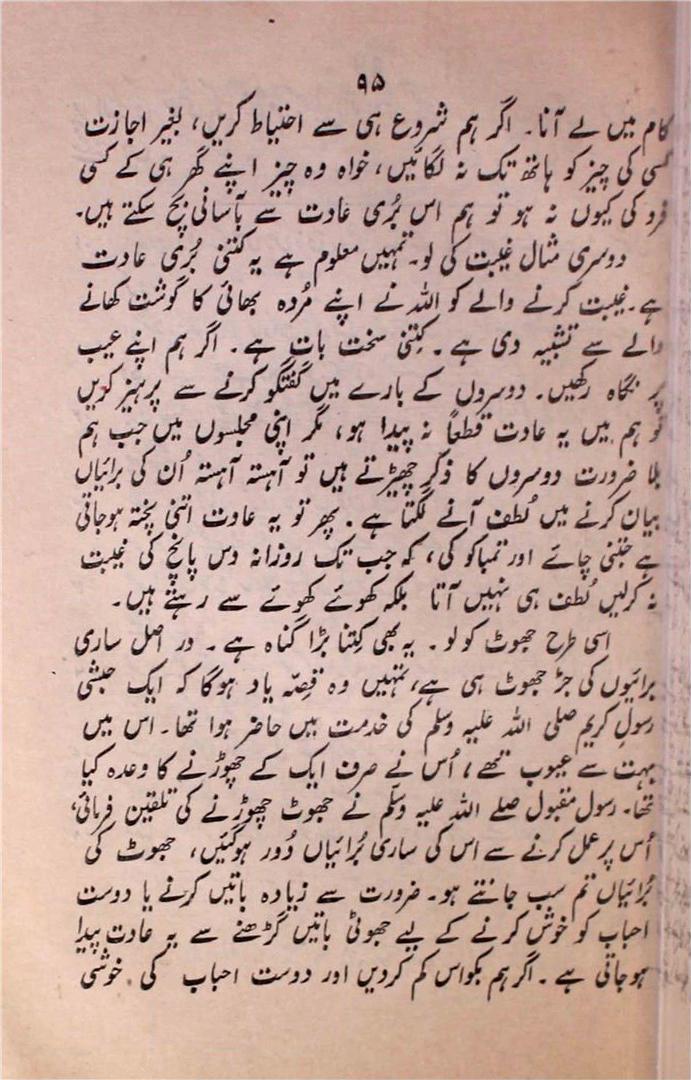 ۹۵
کام میں لے آنا۔ اگر ہم شروع ہی سے احتیاط کریں، بغیر اجازت
کسی کی چیز کو ہاتھ تک نہ لگائیں، خواہ وہ چیز اپنے گھر ہی کے کسی
فرد کی کیوں نہ ہو تو ہم اس بُری عادت سے بآسانی بچ سکتے ہیں۔
دوسری مثال غیبت کی لو۔ تمہیں معلوم ہے یہ کتنی بُری عادت
ہے۔ غیبت کرنے والے کو اللہ نے اپنے مُردہ بھائی کا گوشت کھانے
والے سے تشبیہ دی ہے۔ کتنی سخت بات ہے۔ اگر ہم اپنے عیب
پر نگاہ رکھیں۔ دوسروں کے بارے میں گفتگو کرنے سے پرہیز کریں
تو ہم میں یہ عادت قطعاً نہ پیدا ہو، مگر اپنی مجلسوں میں جب ہم
بلا ضرورت دوسروں کا ذکر چھیڑتے ہیں تو آہستہ آہستہ اُن کی برائیاں
بیان کرنے میں لُطف آنے لگتا ہے۔ پھر تو یہ عادت اتنی پختہ ہوجاتی
ہے جتنی چائے اور تمباکو کی، کہ جب تک روزانہ دس پانچ کی غیبت
نہ کرلیں لُطف ہی نہیں آتا بلکہ کھوئے کھوئے سے رہتے ہیں۔
اسی طرح جھوٹ کو لو۔ یہ بھی کِتنا بڑا گناہ ہے۔ در اصل ساری
برائیوں کی جڑ جھوٹ ہی ہے، تمہیں وہ قِصّہ یاد ہوگا کہ ایک حبشی
رسولِ کریم صلی اللہ علیہ وسلم کی خدمت میں حاضر ہوا تھا۔ اس میں
بہت سے عیوب تھے، اُس نے صرف ایک کے چھوڑنے کا وعدہ کیا
تھا۔ رسول مقبول صلے اللہ علیہ وسلّم نے جھوٹ چھوڑنے کی تلقین فرمائی،
اُس پر عمل کرنے سے اس کی ساری بُرائیاں دُور ہوگئیں، جھوٹ کی
بُرائیاں تم سب جانتے ہو۔ ضرورت سے زیادہ باتیں کرنے یا دوست
احباب کو خوش کرنے کے لیے جھوٹی باتیں گڑھنے سے یہ عادت پیدا
ہوجاتی ہے۔ اگر ہم بکواس کم کردیں اور دوست احباب کی خوشی